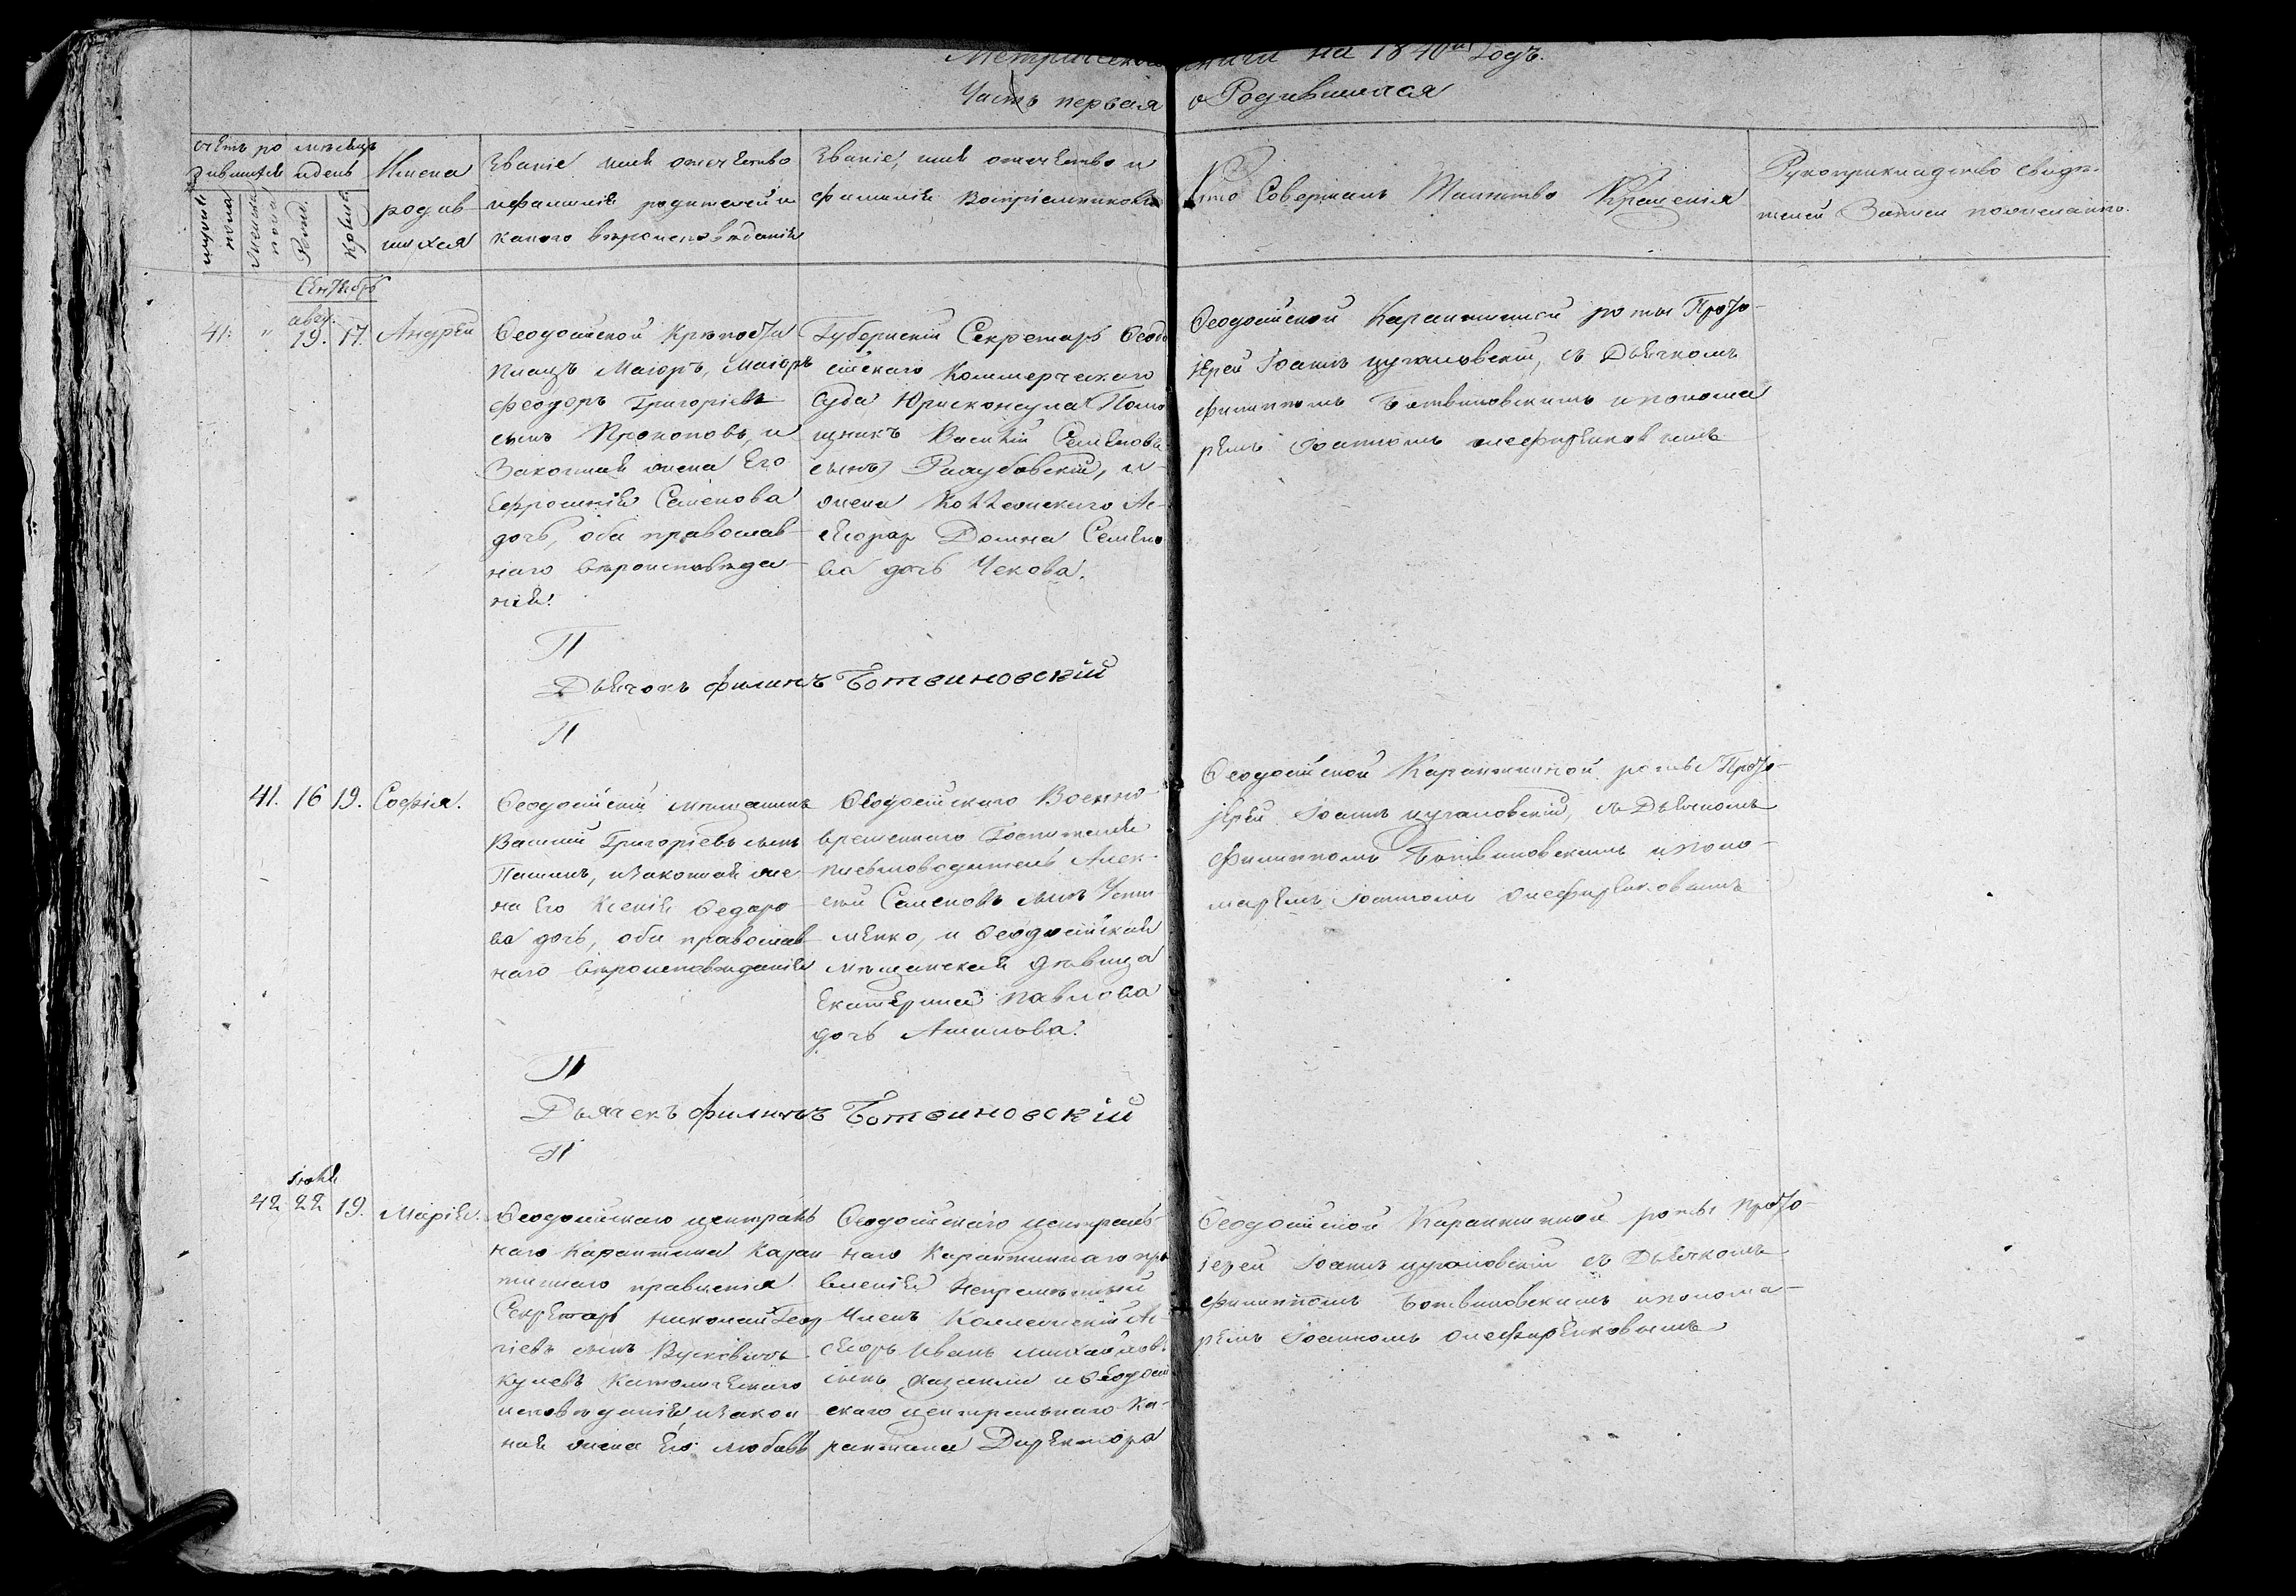 Метрической книги на 1840ый Годъ.
Часть первая о Родившихся
счетъ ро
дившихся
мѣсяцъ
и день
мужеск
пола
женска
пола
Рожд.
Крещ.
Имена
родив
шихся
Званіе имя отчество
и фамилія родителей и
какого вѣроисповѣданія
Званіе, имя отчество и
фамилія Воспріемниковъ
Кто Совершалъ Таинство Крещенія
Рукоприкладство свидѣ-
телей Записи по желанію.
Сентябрь
41. " авгу. 19. 17. Андрей
Ѳеодосійской Крѣпости
Плацъ Маіоръ, Маіоръ
Феодоръ Григоріевъ
сынъ Прокоповъ, и
Законная жена Его
Ефросинія Семенова
дочь, оба православ-
наго вѣроисповѣда-
нія.
Губернскій Секретарь Ѳеодо
сійскаго Коммерческаго
Суда Юрисконсула Помо
щникъ Василій Семеновъ
сынъ и
жена Коллежскаго Ас-
сесора Домна Семено
ва дочь Чехова.
Ѳеодосійской Карантинной роты Прото-
іерей Іоаннъ Цугаловскій, съ Дьячкомъ
Филиппомъ Ботвиновскимъ и понома
ремъ Іоанномъ Олефиренковымъ
П
Дьячокъ Филипъ Ботвиновскій
П
41. 16 19. Софія.
Ѳеодосійскій мѣщанинъ
Василій Григоріевъ сынъ
Пашинъ, и законная же-
на Его Ксенія Ѳедоро-
ва дочь, оба православ-
наго вѣроисповѣданія
Ѳеодосійскаго Военно
временнаго Госпиталя
письмоводитель Алек-
сѣй Семеновъ сынъ Усти
менко, и Ѳеодосійская
мѣщанская дѣвица
Екатерина Павлова
дочь Ашилова.
Ѳеодосійской Карантинной роты Прото-
іерей Іоаннъ Цугаловскій, съ Дьячкомъ
Филиппомъ Ботвиновскимъ и поно-
маремъ Іоанномъ Олефиренковымъ
П
Дьячекъ Филипъ Ботвиновскій
П
42. Іюля 22 19. Марія.
Ѳеодосійскаго централь
наго Карантина Каран
тиннаго правленія
Секретарь Николай Геор
гіевъ сынъ
Католическаго
исповѣданія и закон
ная жена Его Любовь
Ѳеодосійскаго централь-
наго Карантиннаго пра
вленія Непремѣнный
Членъ Коллежскій Ас-
сесоръ Иванъ Михайловъ
сынъ и Ѳеодосій
скаго центральнаго Ка-
рантина Директора
Ѳеодосійской Карантинной роты прото-
іерей Іоаннъ Цугаловскій съ Дьячкомъ
Филиппомъ Ботвиновскимъ и понома-
ремъ Іоанномъ Олефиренковымъ